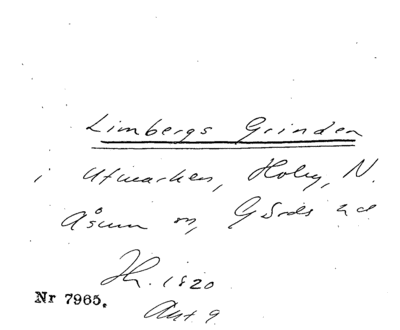 Limbergs Grinden
i Utmarken, Holy, N.
Åsum sn, Gärds hd
Jh. 1820
Nr 7965.
Akt 9